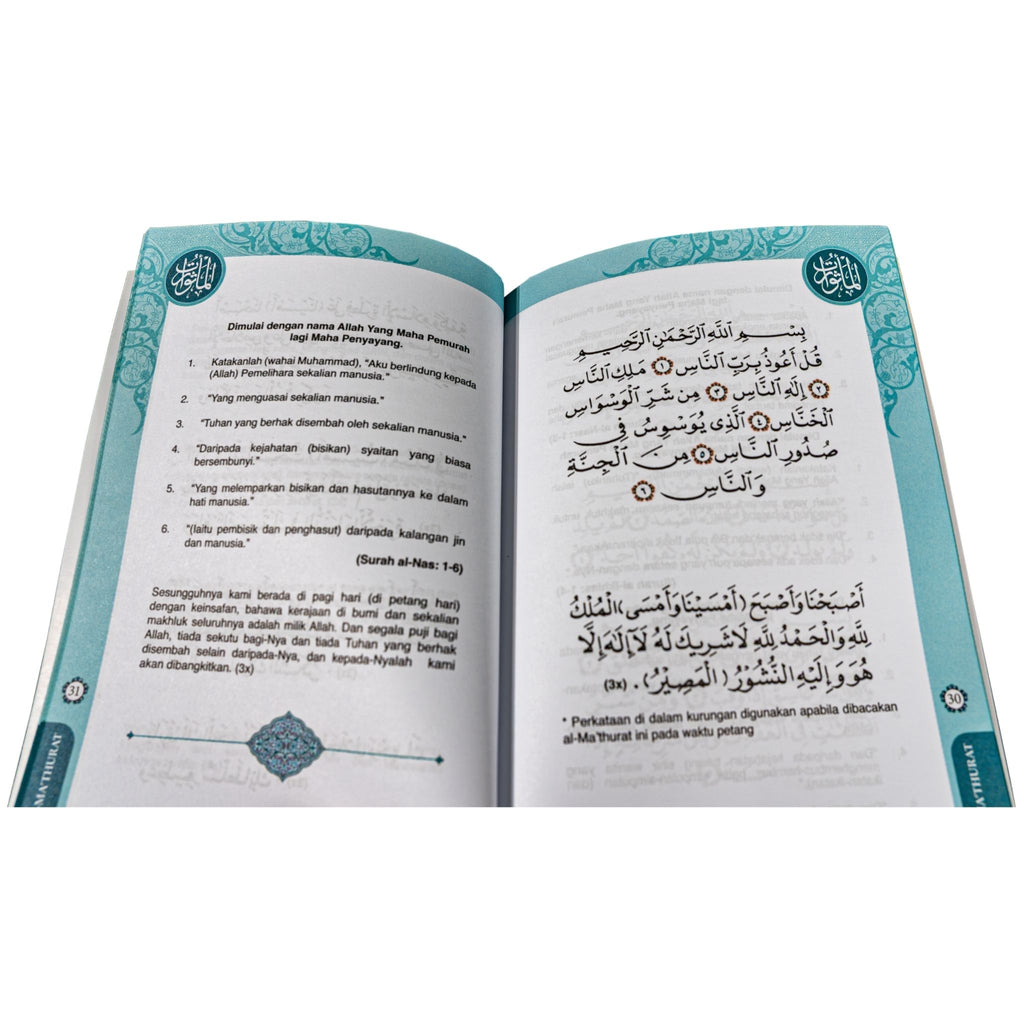 المأثورات
بِسْمِ ٱللَّهِ ٱلرَّحْمَٰنِ ٱلرَّحِيمِ
قُلْ أَعُوذُ بِرَبِّ ٱلنَّاسِ ١ مَلِكِ ٱلنَّاسِ
٢ إِلَٰهِ ٱلنَّاسِ ٣ مِن شَرِّ ٱلْوَسْوَاسِ
ٱلْخَنَّاسِ ٤ ٱلَّذِى يُوَسْوِسُ فِى
صُدُورِ ٱلنَّاسِ ٥ مِنَ ٱلْجِنَّةِ
وَٱلنَّاسِ ٦
أَصْبَحْنَا وَأَصْبَحَ (أَمْسَيْنَا وَأَمْسَى) الْمُلْكُ
لِلَّهِ وَالْحَمْدُ لِلَّهِ لَا شَرِيكَ لَهُ لَآ إِلَهَ إِلَّا
هُوَ وَإِلَيْهِ النُّشُوْرُ (الْمَصِيْرُ). (3x)
* Perkataan di dalam kurungan digunakan apabila dibacakan
al-Ma'thurat ini pada waktu petang
30
المأثورات
Dimulai dengan nama Allah Yang Maha Pemurah
lagi Maha Penyayang.
1. Katakanlah (wahai Muhammad), "Aku berlindung kepada
(Allah) Pemelihara sekalian manusia."
2. "Yang menguasai sekalian manusia."
3. "Tuhan yang berhak disembah oleh sekalian manusia."
4. "Daripada kejahatan (bisikan) syaitan yang biasa
bersembunyi."
5. "Yang melemparkan bisikan dan hasutannya ke dalam
hati manusia."
6. "(Iaitu pembisik dan penghasut) daripada kalangan jin
dan manusia."
(Surah al-Nas: 1-6)
Sesungguhnya kami berada di pagi hari (di petang hari)
dengan keinsafan, bahawa kerajaan di bumi dan sekalian
makhluk seluruhnya adalah milik Allah. Dan segala puji bagi
Allah, tiada sekutu bagi-Nya dan tiada Tuhan yang berhak
disembah selain daripada-Nya, dan kepada-Nyalah kami
akan dibangkitkan. (3x)
31
MA'THURAT
A'THURAT